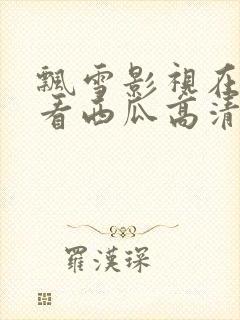 飄雪影視在
看西瓜高清
羅漢琛